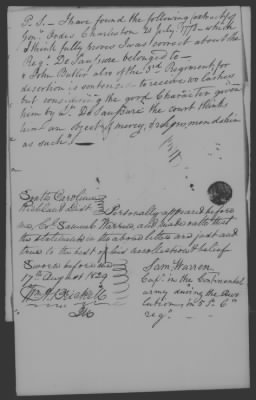 P.S. - I have found the following extract of
Genl. Orders Charleston 21 July 1778 - which
I think fully proves I was correct about the
Regt. De Saussure belonged to -
"John Butler also of the 5th Regiment for
desertion is sentenced to receive 100 Lashes
but considering the good Character given
him by Lt. De Saussure the court thinks
him an object of mercy, & recommends him
as such"
South Carolina
District
Personally appeared before
me, Col. Samuel Warren, and made oath that
the statements in the above letter are just and
true to the best of his recollection & belief
Sworn before me
17th August 1829
Saml. Warren
Capt. in the Continental
army during the Revo
lution, in 5 So. Ca
regt.